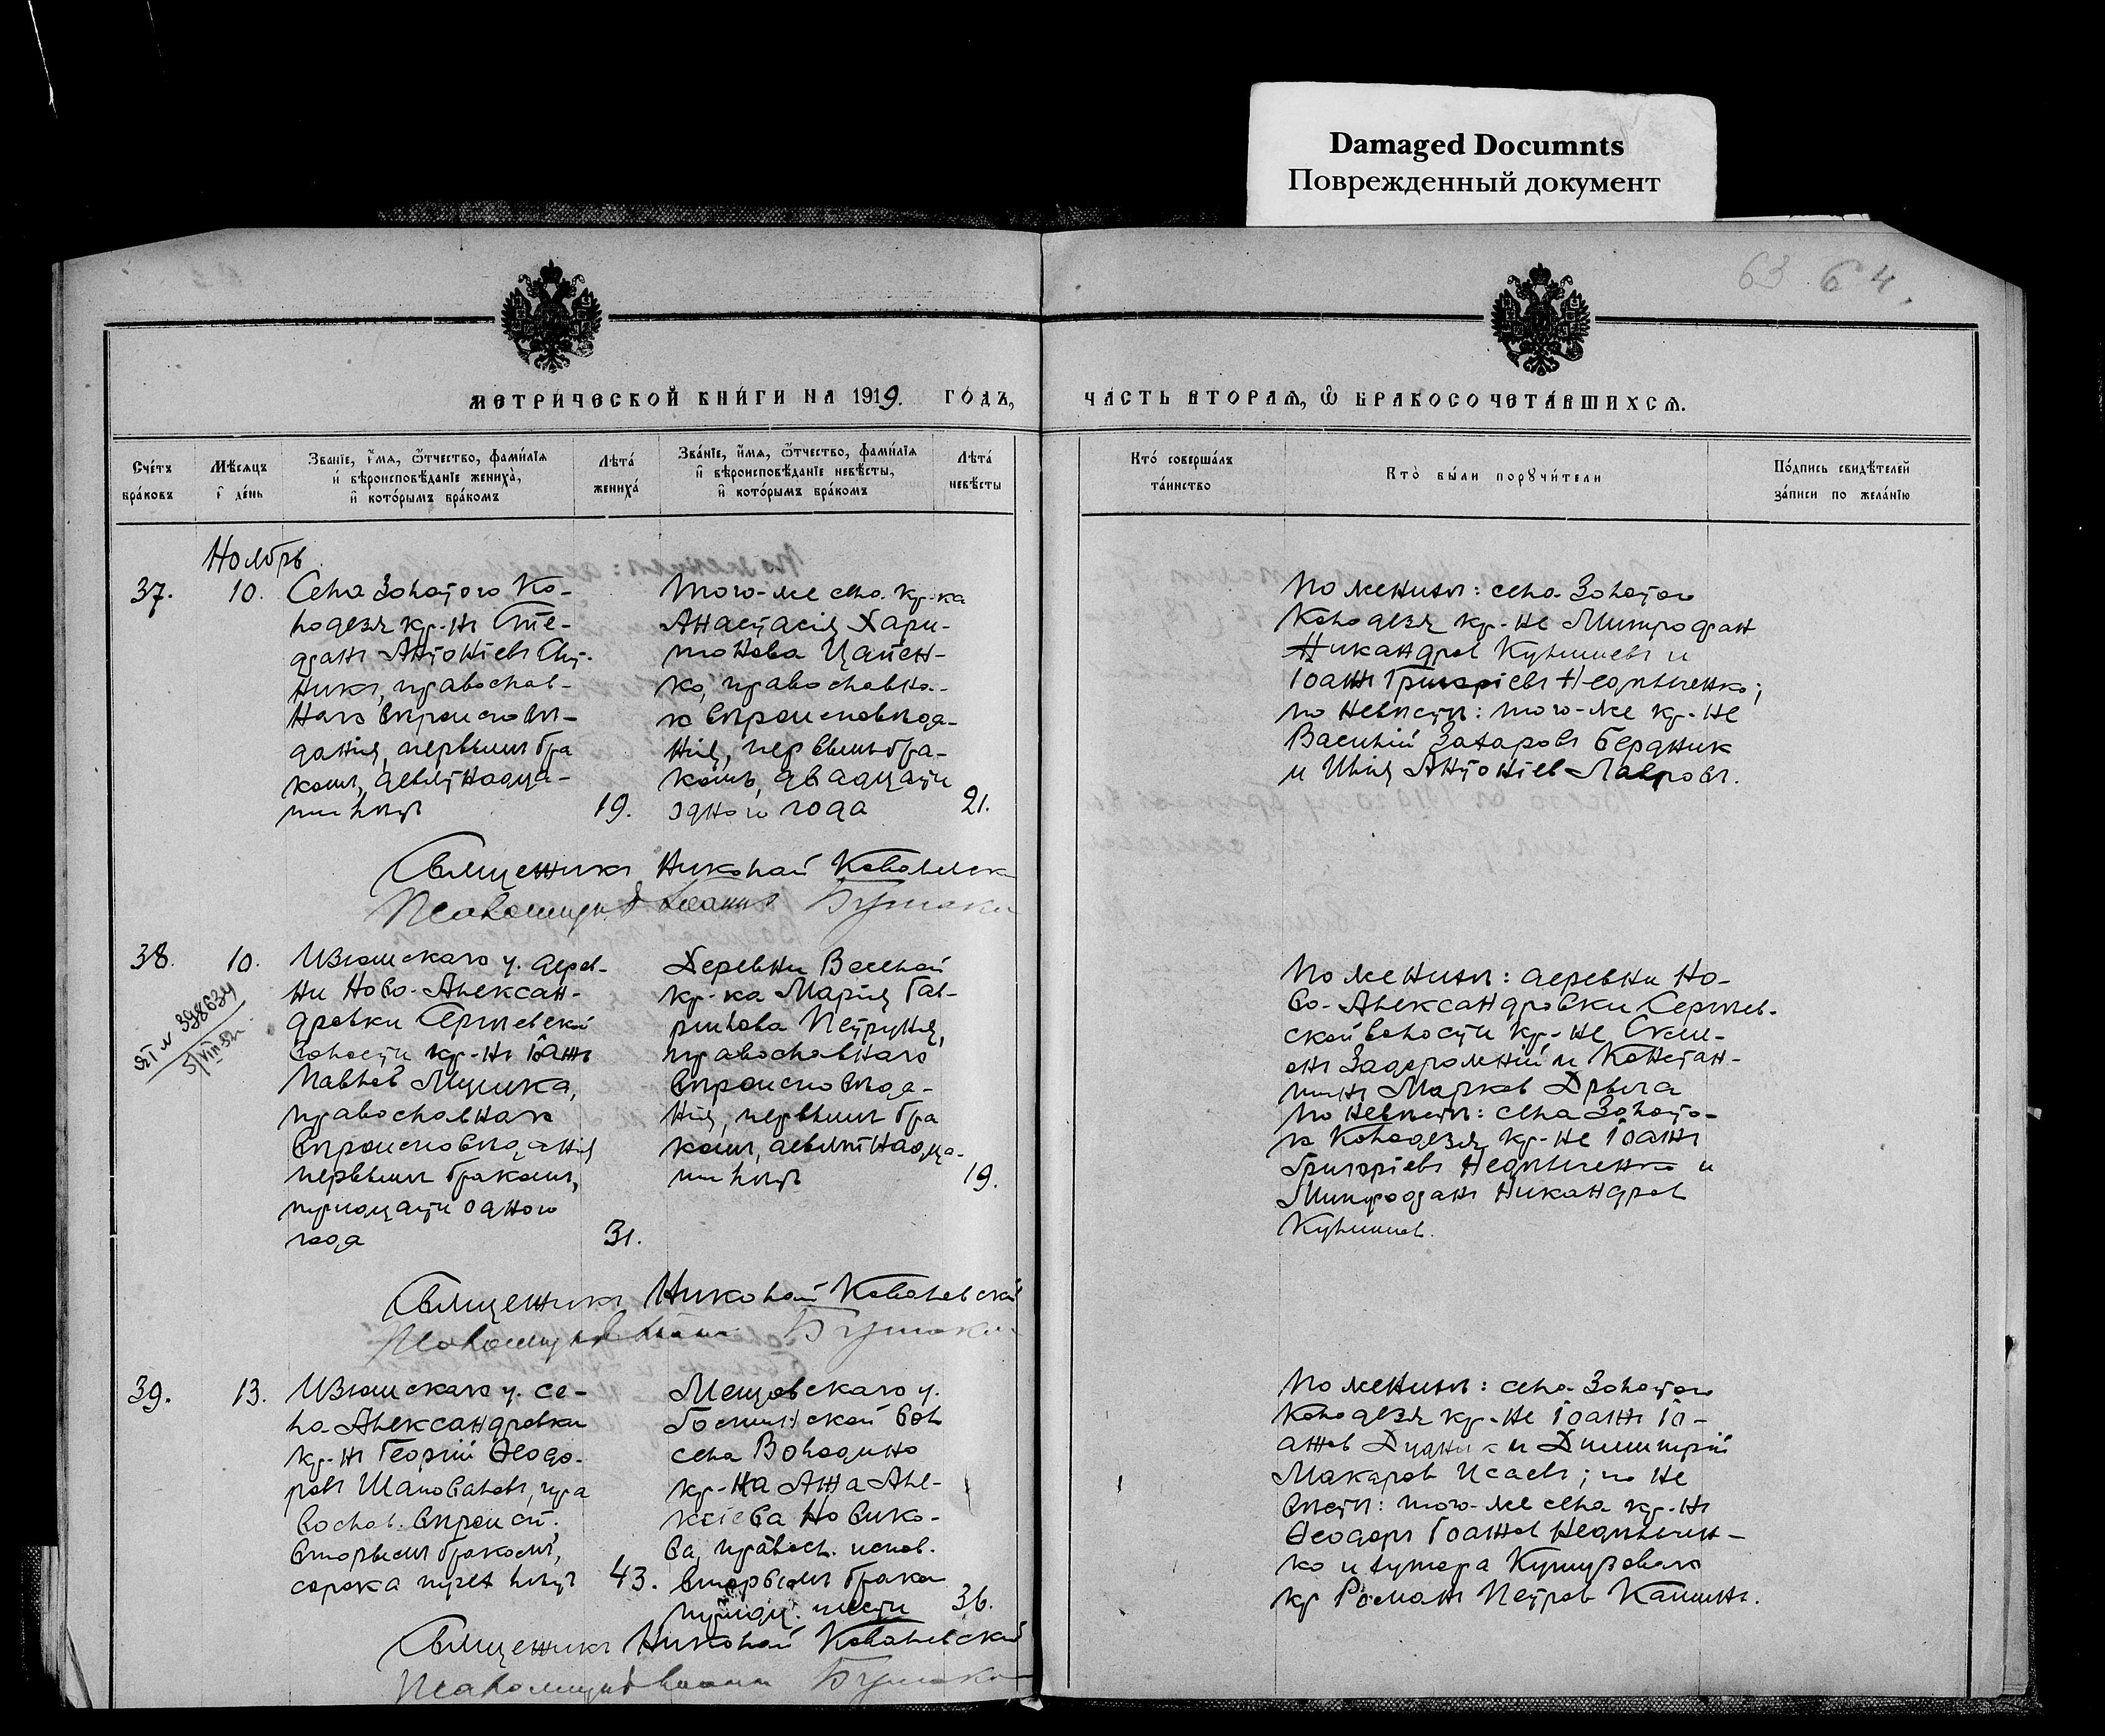 Damaged Documnts
Поврежденный документ
63 64.
МЕТРИЧЕСКОЙ КНИГИ НА 1919. ГОДЪ,
ЧАСТЬ ВТОРАЯ, Ѡ БРАКОСОЧЕТАВШИХСЯ.
Счетъ браковъ
Мѣсяцъ и день
Званіе, имя, ѿтчество, фамилія
и вѣроисповѣданіе жениха,
и которымъ бракомъ
Лѣта жениха
Званіе, имя, ѿтчество, фамилія
и вѣроисповѣданіе невѣсты,
и которымъ бракомъ
Лѣта невѣсты
Кто совершалъ таинство
Кто были поручители
Подпись свидѣтелей
записи по желанію
Ноябрь
37. 10.
Села Золотого Ко-
лодезя кр-нъ Сте-
фанъ Антоніевъ
никъ, православ-
наго вѣроисповѣ-
данія, первымъ бра
комъ, девятнадца-
ти лѣтъ 19.
Того-же села кр-ка
Анастасія Хари-
тонова Цапен-
ко, православна-
го вѣроисповѣда-
нія, первымъ бра-
комъ, двадцати
одного года 21.
По женихѣ: села Золотого
Колодезя кр-не Митрофан
Никандров и
Іоаннъ Григоріевъ Недѣленко;
по невѣстѣ: того-же кр-не
Василій Захаровъ Бердник
и Илія Антоніев Лавровъ.
Священникъ Николай Ковалевск
Псаломщикъ Іоаннъ
38. 10.
Изюмскаго у. дерев-
ни Ново-Алексан-
дровки Сергіевской
волости кр-нъ Іоаннъ
Павлов Мушка,
православнаго
вѣроисповѣданія
первымъ бракомъ,
тридцати одного
года 31.
№ 398634
5/VIII 52г.
Деревни Веселой
кр-ка Марія Гав-
рилова Петруня,
православнаго
вѣроисповѣда-
нія, первымъ бра
комъ, девятнадца-
ти лѣтъ 19.
По женихѣ: деревни Но-
во-Александровки Сергіев-
ской волости кр-не Сими-
онъ Задорожній и Констан-
тинъ Марков
По невѣстѣ: села Золото-
го Колодезя кр-не Іоаннъ
Григоріевъ Недѣленко и
Митрофанъ Никандров
Священникъ Николай Ковалевскій
Псаломщикъ
39. 13.
Изюмскаго у. се-
ла Александровки
кр-нъ Георгій Ѳеодо-
ровъ Шаповаловъ, пра
вослав. вѣроисп.,
вторымъ бракомъ,
сорока трехъ лѣтъ 43.
Мещовскаго у.
вол
села Володино
кр-на Анна Але-
ксіева Новико-
ва, правосл. испов.
вторымъ брако
тридц. шести 36.
По женихѣ: села Золотого
Колодезя кр-не Іоаннъ Іо-
аннов Дудник и Димитрій
Макаров Исаевъ; по не
вѣстѣ: того-же села кр-нъ
Ѳеодоръ Іоаннов Недѣлен-
ко и хутора
кр Романъ Петров Кашинъ.
Священникъ Николай Ковалевскій
Псаломщикъ